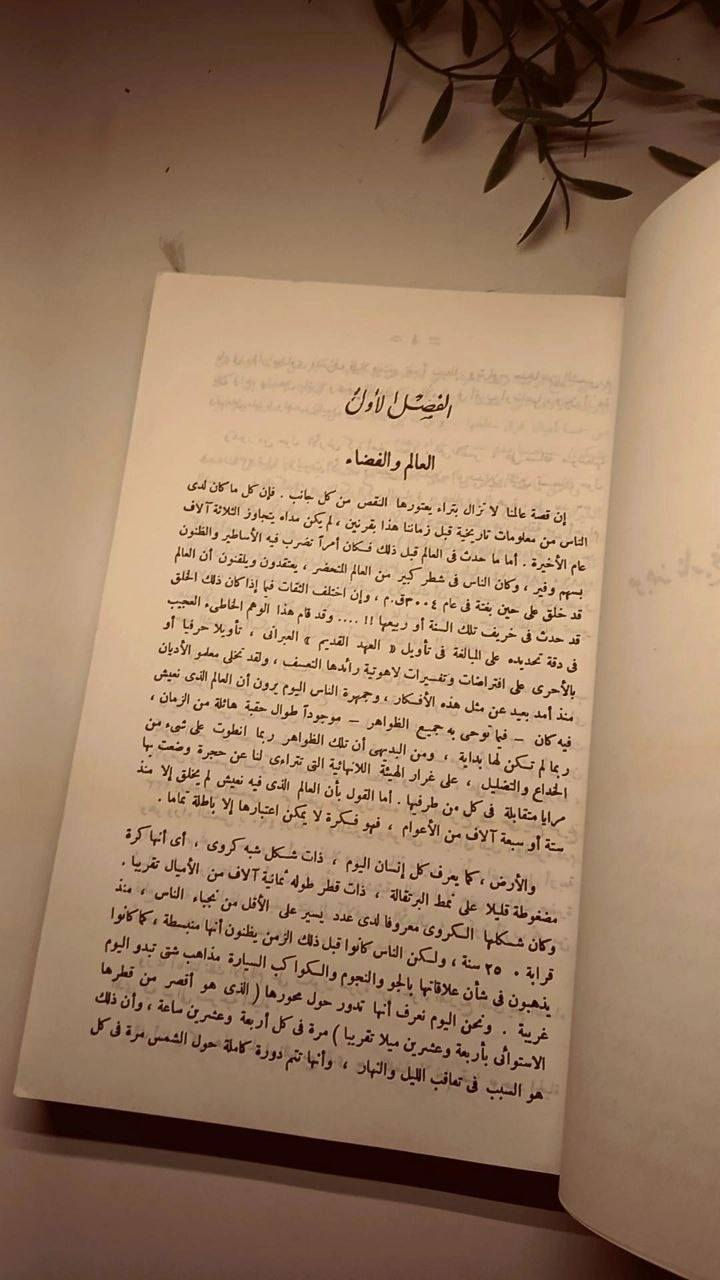 الفصل الأول
العالم والفضاء
إن قصة عالمنا لا تزال بتراء يعتورها النقص من كل جانب . فإن كل ما كان لدى
الناس من معلومات تاريخية قبل زماننا هذا بقرنين ، لم يكن مداه يتجاوز الثلاثة آلاف
عام الأخيرة . أما ما حدث فى العالم قبل ذلك فكان أمراً تضرب فيه الأساطير والظنون
بسهم وفير ، وكان الناس فى شطر كبير من العالم المتحضر ، يعتقدون ويلقنون أن العالم
قد خلق على حين بغتة فى عام ٤٠٠٣ق.م ، وإن اختلف الثقات فيما إذا كان ذلك الخلق
قد حدث فى خريف تلك السنة أو ربيعها !! .... وقد قام هذا الوهم الخاطىء العجيب
فى دقة تحديده على المبالغة فى تأويل « العهد القديم » العبرانى ، تأويلا حرفيا أو
بالأحرى على افتراضات وتفسيرات لاهوتية رائدها التعسف ، ولقد تخلى معلمو الأديان
منذ أمد بعيد عن مثل هذه الأفكار ، وجمهرة الناس اليوم يرون أن العالم الذى نعيش
فيه كان – فيما توحى به جميع الظواهر – موجوداً طوال حقبة هائلة من الزمان ،
ربما لم تكن لها بداية ، ومن البديهى أن تلك الظواهر ربما انطوت على شىء من
الخداع والتضليل ، على غرار الهيئة اللانهائية التى تتراءى لنا عن حجرة وضعت بها
مرايا متقابلة فى كل من طرفيها . أما القول بأن العالم الذى فيه نعيش لم يخلق إلا منذ
ستة أو سبعة آلاف من الأعوام ، فهو فكرة لا يمكن اعتبارها إلا باطلة تماما .
والأرض ، كما يعرف كل إنسان اليوم ، ذات شكل شبه كروى ، أى أنها كرة
مضغوطة قليلا على نمط البرتقالة ، ذات قطر طوله ثمانية آلاف من الأميال تقريبا .
وكان شكلها الكروى معروفا لدى عدد يسير على الأقل من نجباء الناس ، منذ
قرابة ٢٥٠٠ سنة ، ولكن الناس كانوا قبل ذلك الزمن يظنون أنها منبسطة ، كما كانوا
يذهبون فى شأن علاقاتها بالجو والنجوم والكواكب السيارة مذاهب شتى تبدو اليوم
غريبة . ونحن اليوم نعرف أنها تدور حول محورها ( الذى هو أقصر من قطرها
الاستوائى بأربعة وعشرين ميلا تقريبا ) مرة فى كل أربعة وعشرين ساعة ، وأن ذلك
هو السبب فى تعاقب الليل والنهار ، وأنها تتم دورة كاملة حول الشمس مرة فى كل